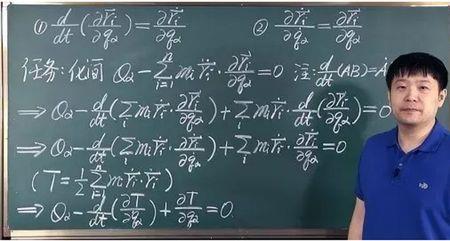 ① d/dt(∂r⃗ᵢ/∂qα) = ∂r⃗̇ᵢ/∂qα ② ∂r⃗̇ᵢ/∂q̇α = ∂r⃗ᵢ/∂qα
任务:化简 Qα - ∑ᵢ₌₁ⁿ mᵢr⃗̈ᵢ·∂r⃗ᵢ/∂qα = 0 注: d/dt(AB)=Ȧ
⇒ Qα - d/dt(∑ᵢ mᵢr⃗̇ᵢ·∂r⃗ᵢ/∂qα) + ∑ᵢ mᵢr⃗̇ᵢ·d/dt(∂r⃗ᵢ/∂qα) = 0
⇒ Qα - d/dt(∑ᵢ mᵢr⃗̇ᵢ·∂r⃗̇ᵢ/∂q̇α) + ∑ᵢ mᵢr⃗̇ᵢ·∂r⃗̇ᵢ/∂qα = 0
(T = ½∑ᵢ₌₁ⁿ mᵢr⃗̇ᵢ·r⃗̇ᵢ)
⇒ Qα - d/dt(∂T/∂q̇α) + ∂T/∂qα = 0